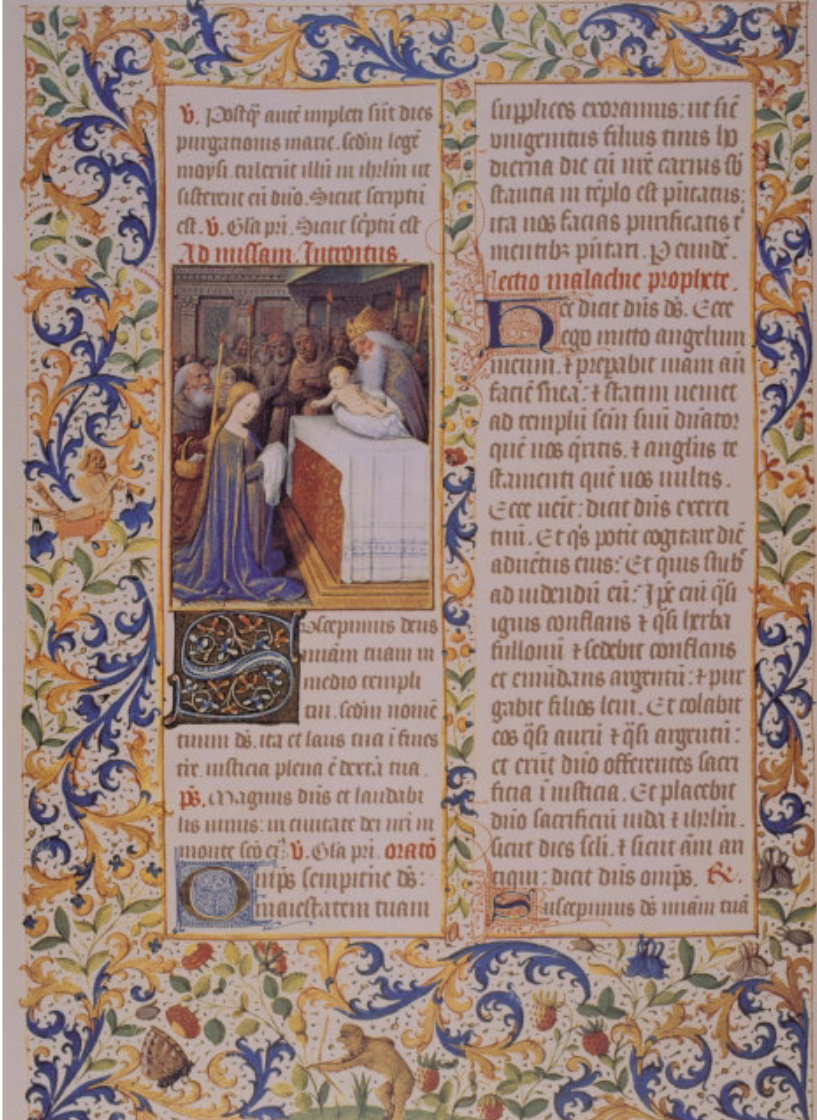 v. Postq̄ autē impleti sūt dies
purgationis marie. scdm̄ legē
moysi. tulerūt illū in ihrlm̄ ut
sisterent eū dūo. Sicut scriptū
est. v. Glā pri. Sicut sc̄ptū est
Ad missam. Introitus.
Suscepimus deus
miām tuam in
medio templi
tui. scdm̄ nomē
tuum ds̄. ita et laus tua ī fines
tre. iusticia plena ē dextā tua.
ps. Magnus dn̄s et laudabi
lis nimis: in ciuitate dei nr̄i in
monte scō eiꝰ. v. Glā pri. oratō
Omīps sempitīne ds̄:
maiestatem tuam
supplices exoramus: ut sic̄
vnigenitus filius tuus ho
dierna die cū nr̄e carnis sb̄
stantia in tēplo est pn̄tatus:
ita nos facias purificatis t̄
mentibꝫ pn̄tari. P eundē.
Lectio malachie prophete.
Hec dicit dn̄s ds̄. Ecce
ego mitto angelum
meum. ⁊ prepabit uiam an̄
faciē meā: ⁊ statim ueniet
ad templū scm̄ suū dn̄ator
quē uos qr̄itis. ⁊ anglūs te
stamenti quē uos uultis.
Ecce uēit: dicit dn̄s exerci
tuū. Et qis potit cogitare diē
aduētus eius: Et quis stab̄
ad uidendū eū: Ip̄e eni qsi
ignis conflans ⁊ qsi herba
fullonū ⁊ sedebit conflans
et emūdans argentū: ⁊ pur
gabit filios leui. Et colabit
eos qsi aurū ⁊ qsi argentū:
et erūt dn̄o offerentes sacri
ficia ī iusticia. Et placebit
dn̄o sacrificiū iuda ⁊ ihrlm̄.
sicut dies scl̄i. ⁊ sicut an̄i an
tiqui: dicit dn̄s omīps. R.
Suscepimus ds̄ miām tuā